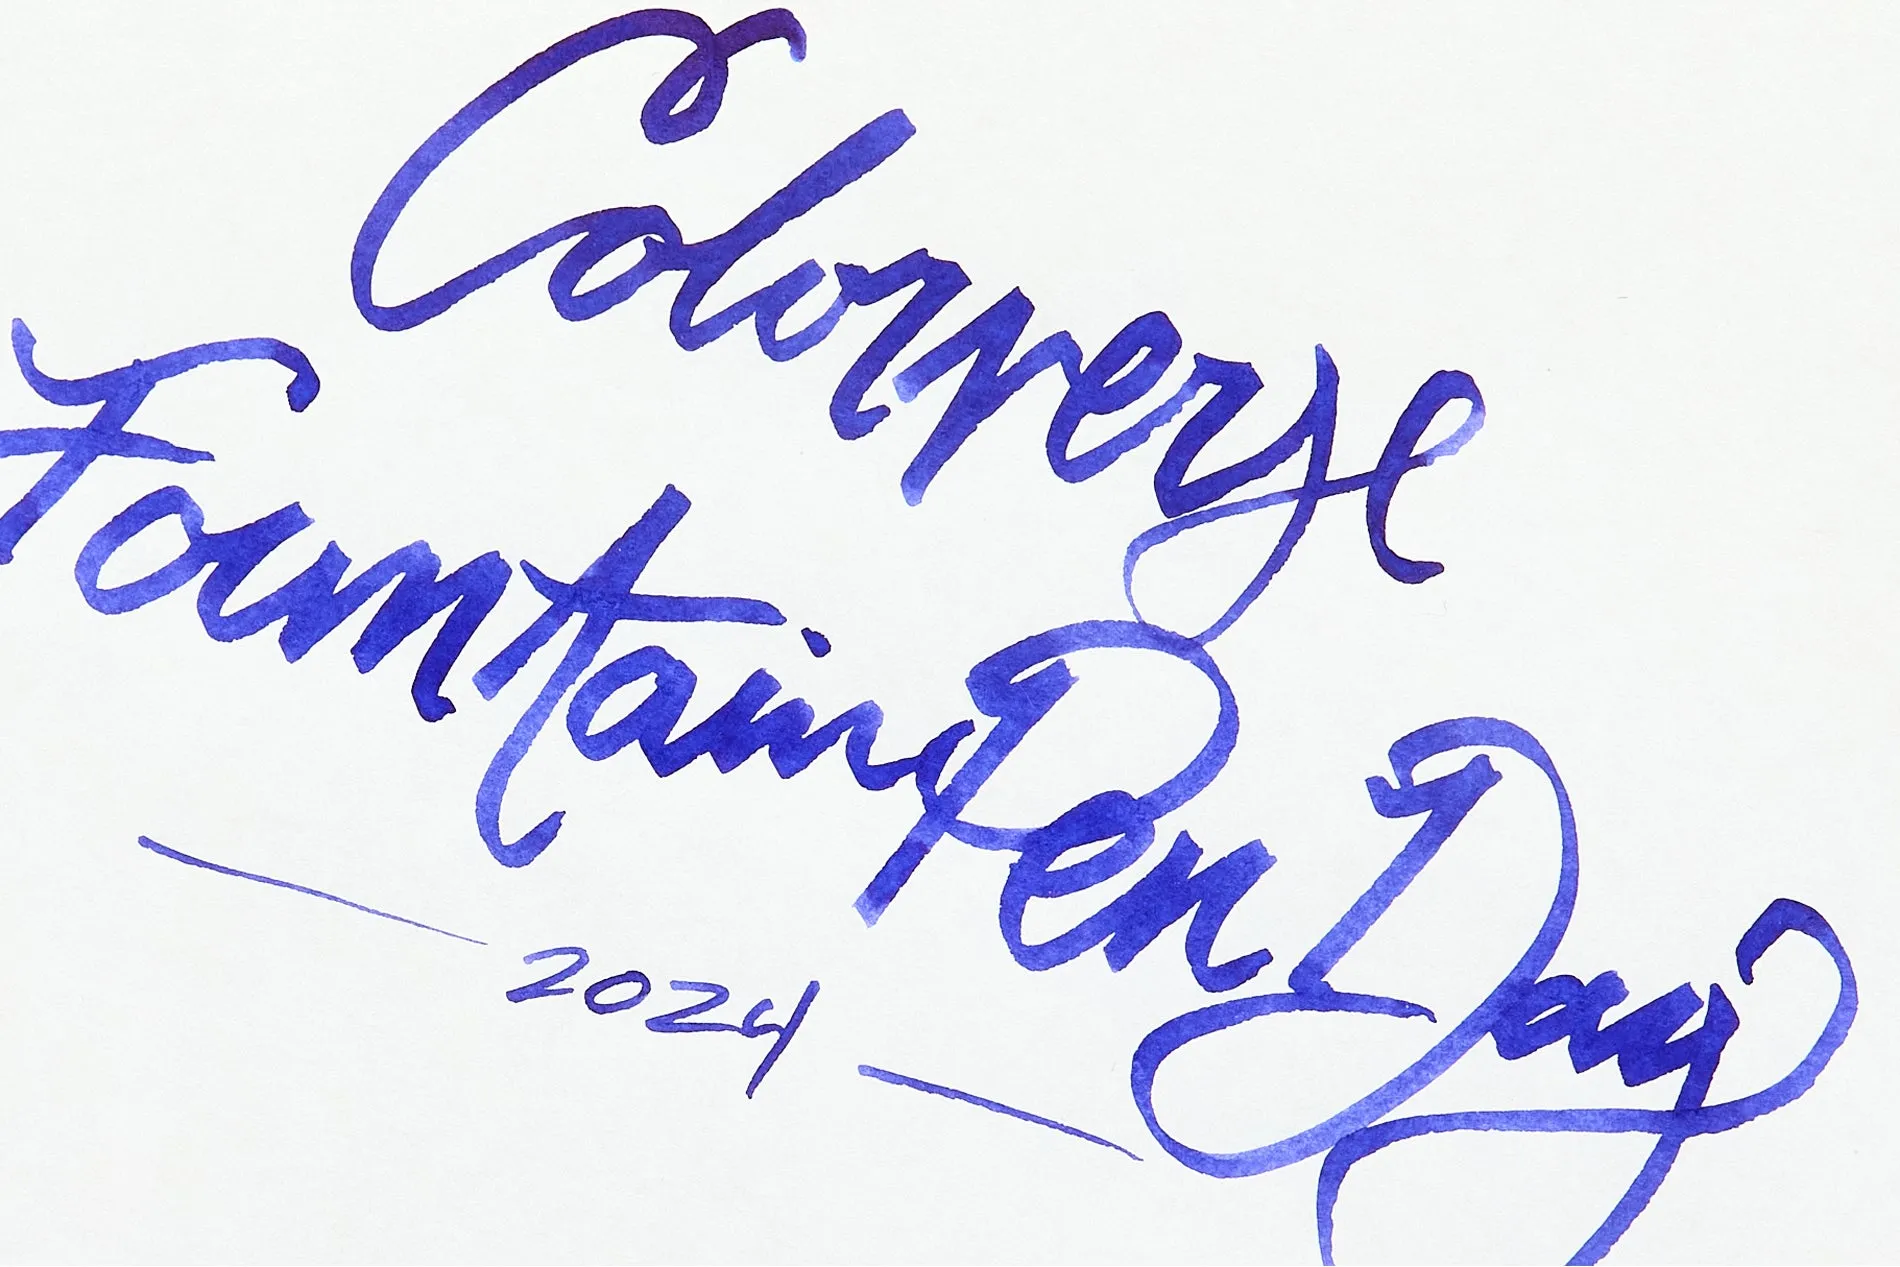 Colorverse
Fountain Pen Day
— 2024 —